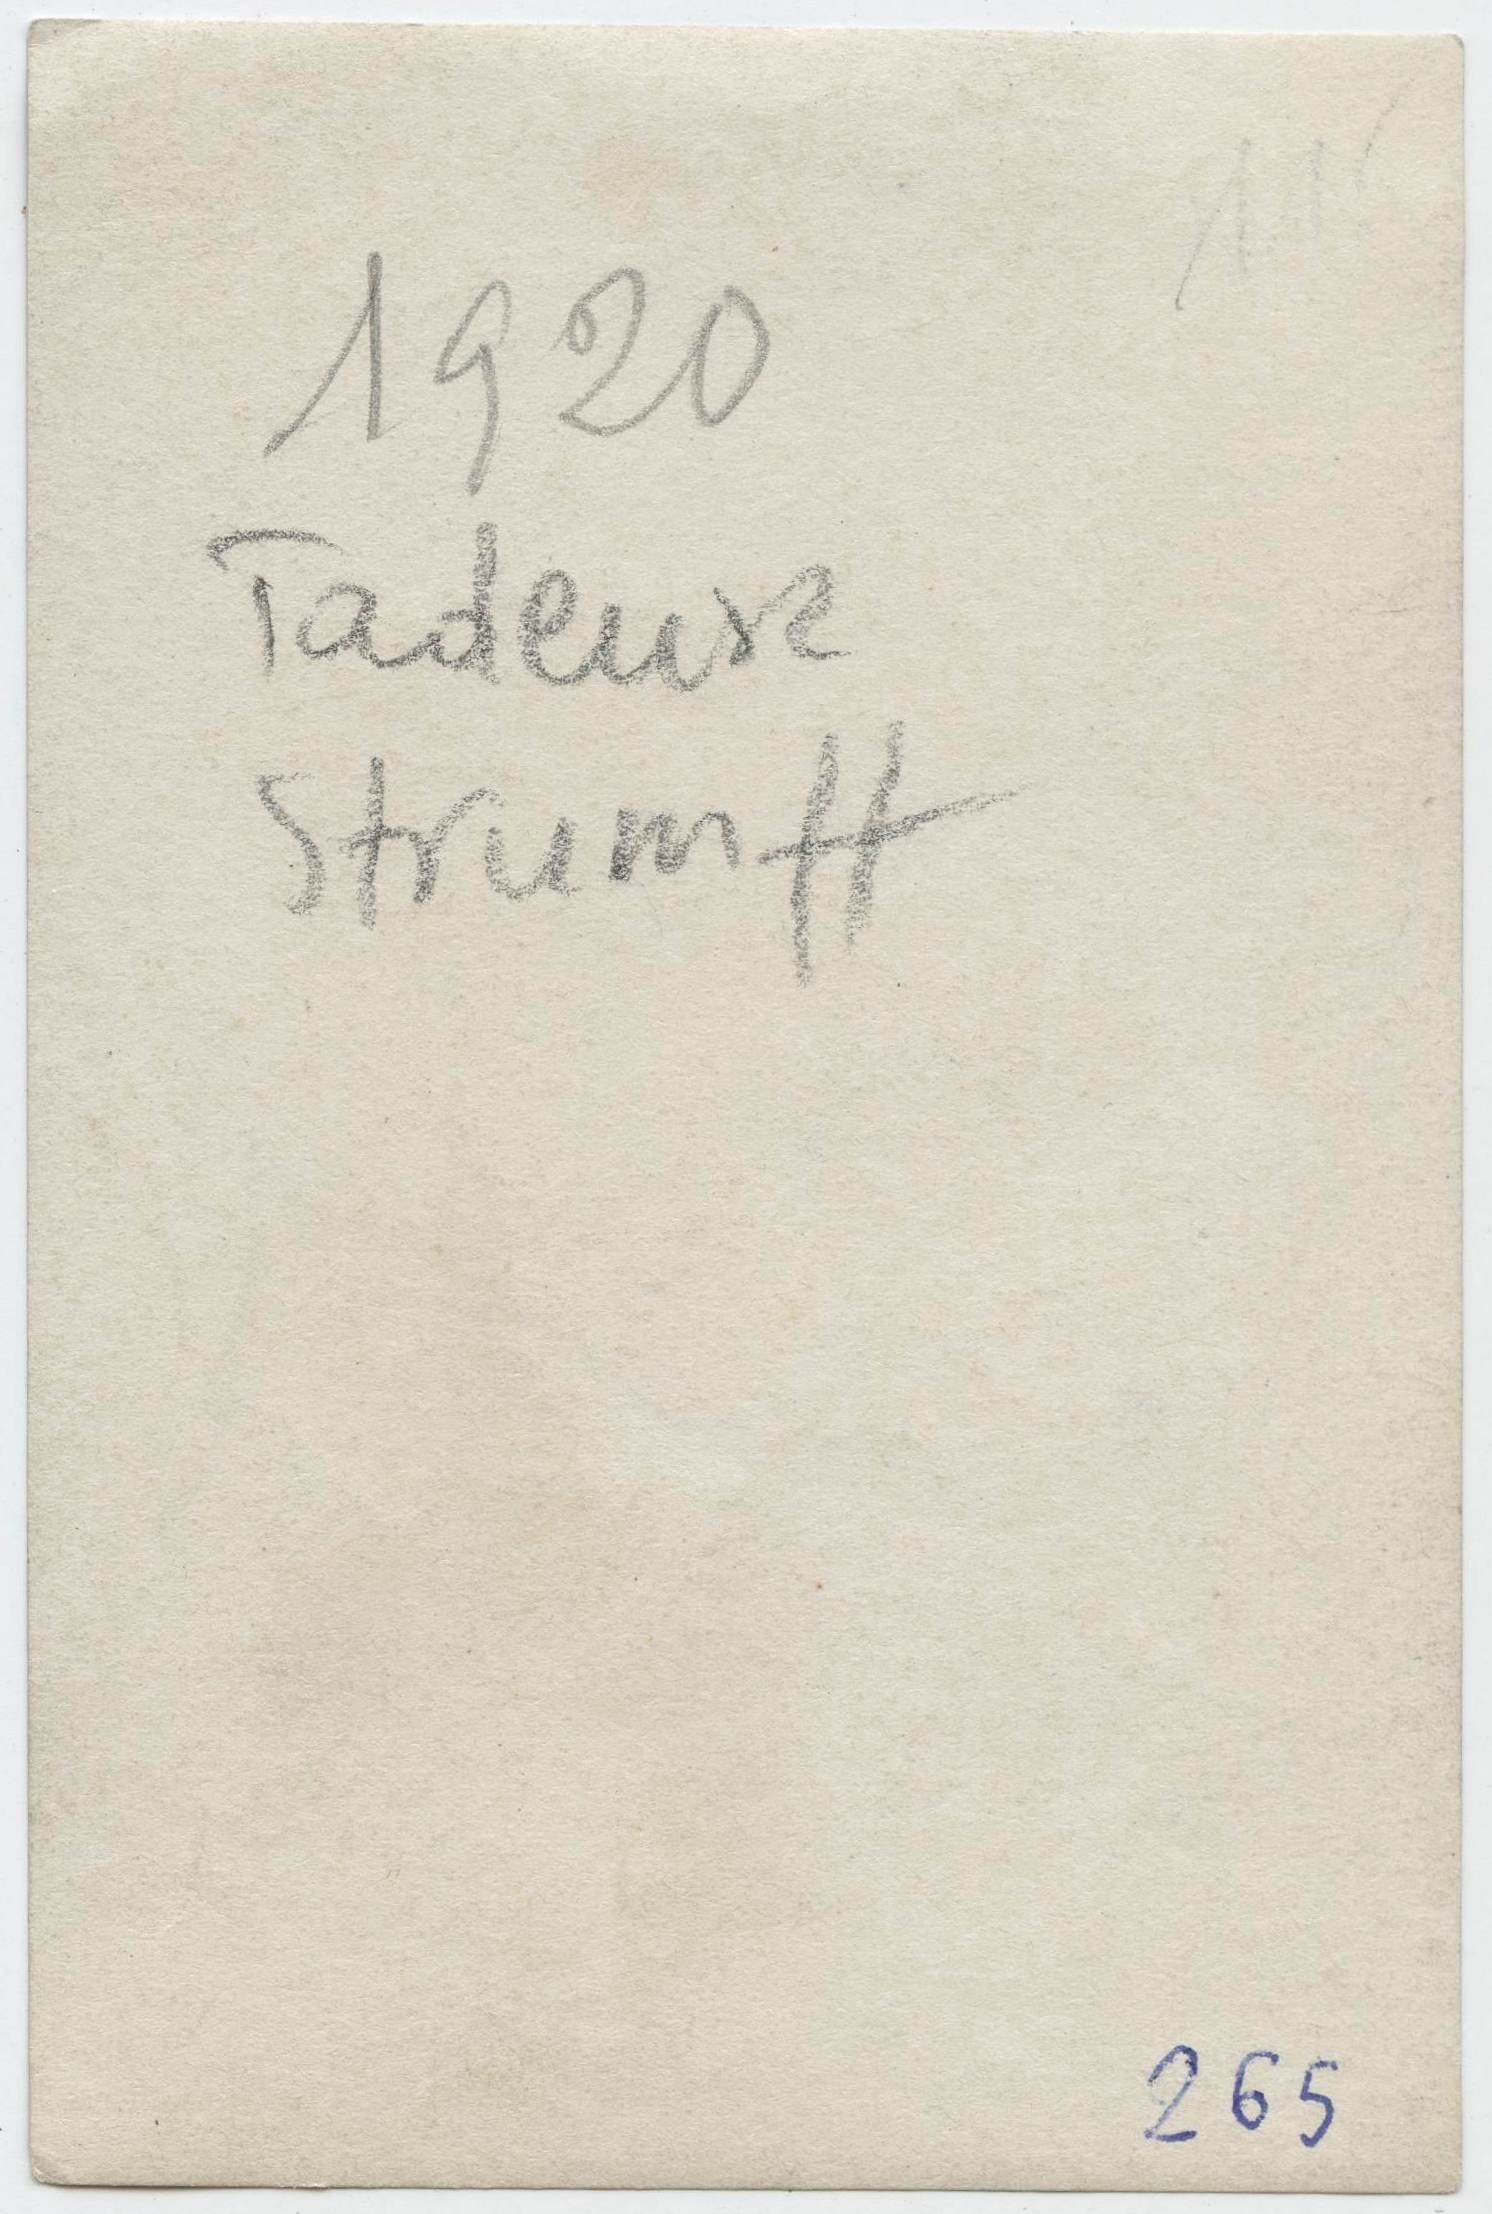 1920
Tadeusz
Strumff
265